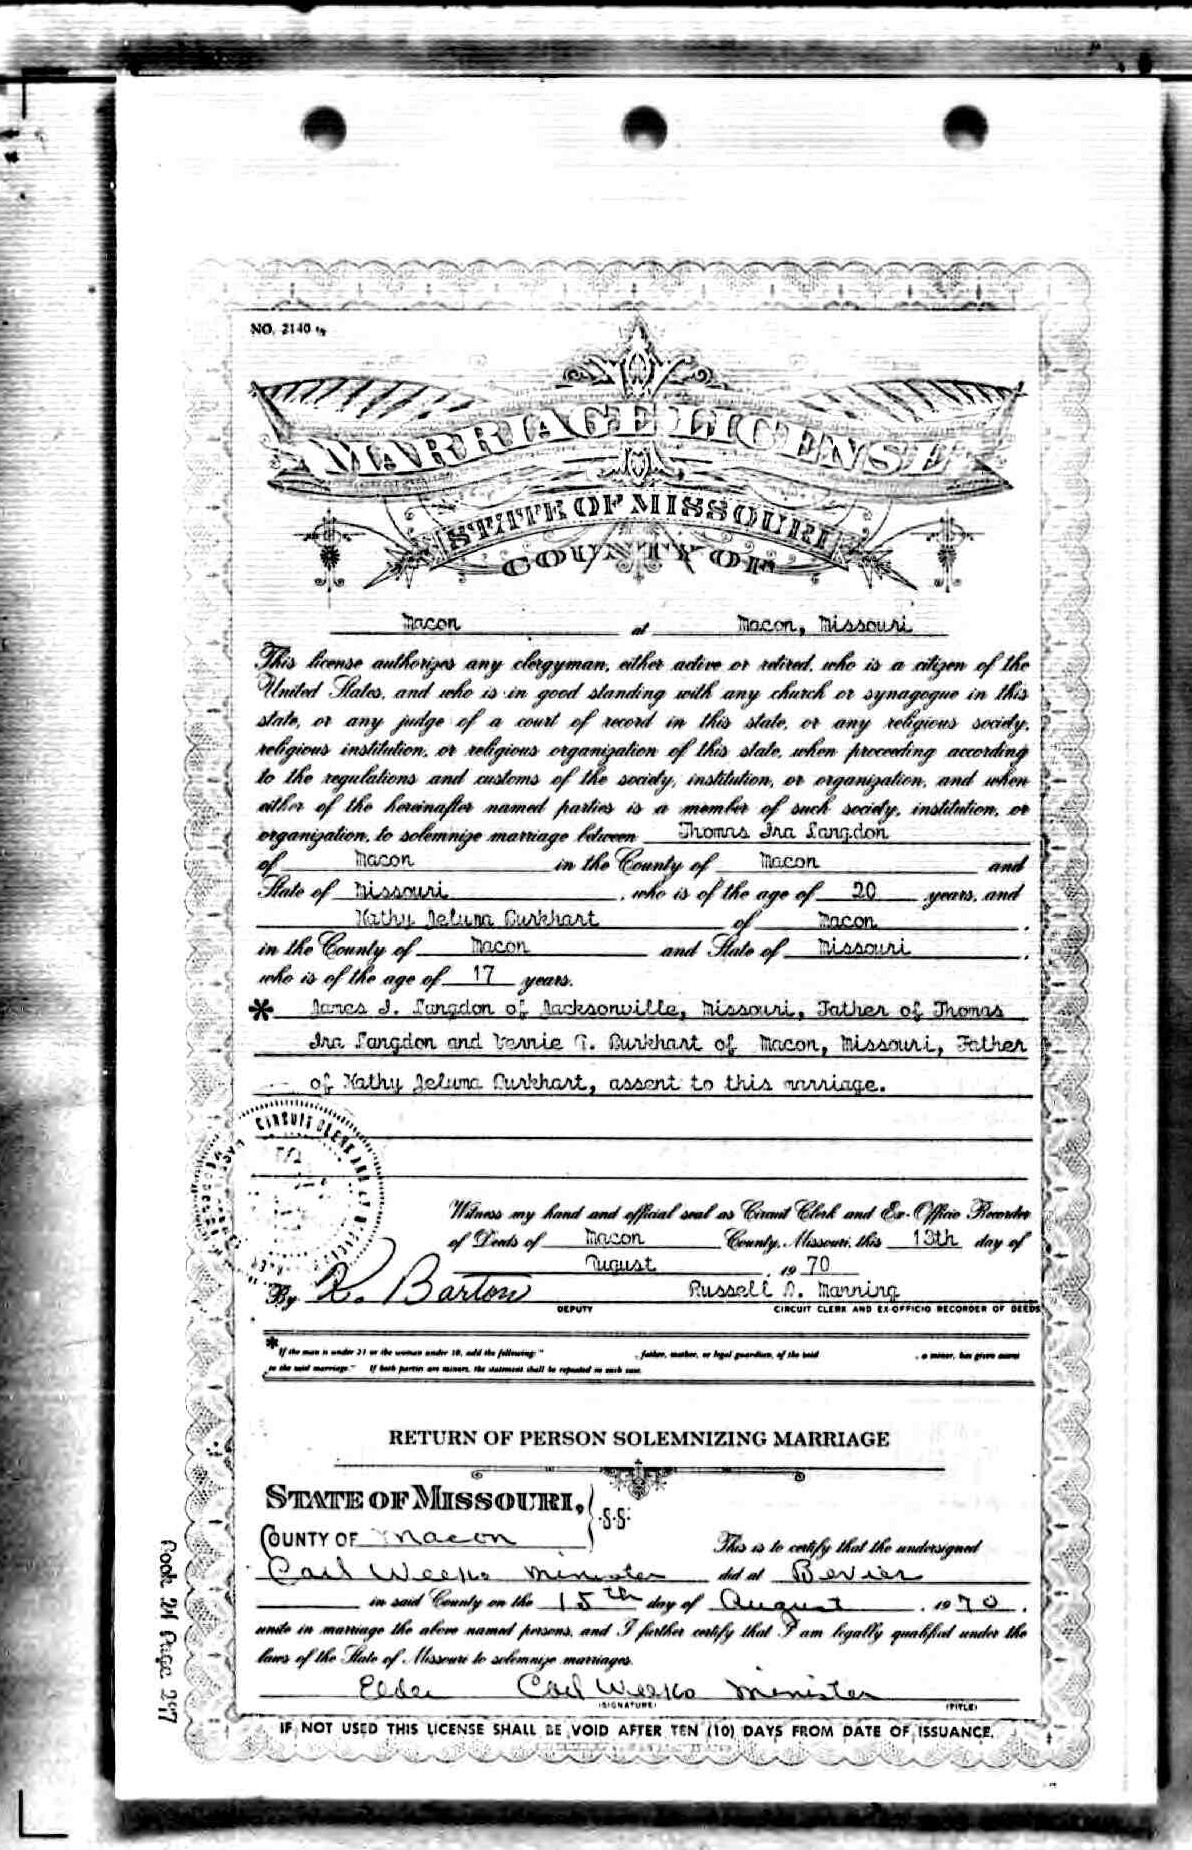 NO. 2140
MARRIAGE LICENSE
STATE OF MISSOURI
COUNTY OF
Macon at Macon, Missouri
This license authorizes any clergyman, either active or retired, who is a citizen of the
United States, and who is in good standing with any church or synagogue in this
state, or any judge of a court of record in this state, or any religious society,
religious institution, or religious organization of this state, when proceeding according
to the regulations and customs of the society, institution, or organization, and when
either of the hereinafter named parties is a member of such society, institution, or
organization, to solemnize marriage between Thomas Ira Langdon
of Macon in the County of Macon and
State of Missouri, who is of the age of 20 years, and
Kathy Jeluna Burkhart of Macon,
in the County of Macon and State of Missouri,
who is of the age of 17 years.
* James I. Langdon of Jacksonville, Missouri, Father of Thomas
Ira Langdon and Vernie T. Burkhart of Macon, Missouri, Father
of Kathy Jeluna Burkhart, assent to this marriage.
CIRCUIT CLERK AND
Witness my hand and official seal as Circuit Clerk and Ex-Officio Recorder
of Deeds of Macon County, Missouri, this 13th day of
August, 1970
By R. Barton Russell D. Manning
DEPUTY CIRCUIT CLERK AND EX-OFFICIO RECORDER OF DEEDS
* If the man is under 21 or the woman under 18, add the following: " , father, mother, or legal guardian, of the said , a minor, has given assent
to the said marriage." If both parties are minors, the statement shall be repeated in each case.
RETURN OF PERSON SOLEMNIZING MARRIAGE
STATE OF MISSOURI, } S.S:
COUNTY OF Macon This is to certify that the undersigned
Carl Weeks Minister did at Bevier
in said County on the 15th day of August, 1970,
unite in marriage the above named persons, and I further certify that I am legally qualified under the
laws of the State of Missouri to solemnize marriages.
Elder Carl Weeks Minister
(SIGNATURE) (TITLE)
IF NOT USED THIS LICENSE SHALL BE VOID AFTER TEN (10) DAYS FROM DATE OF ISSUANCE.
Book 21 Page 277